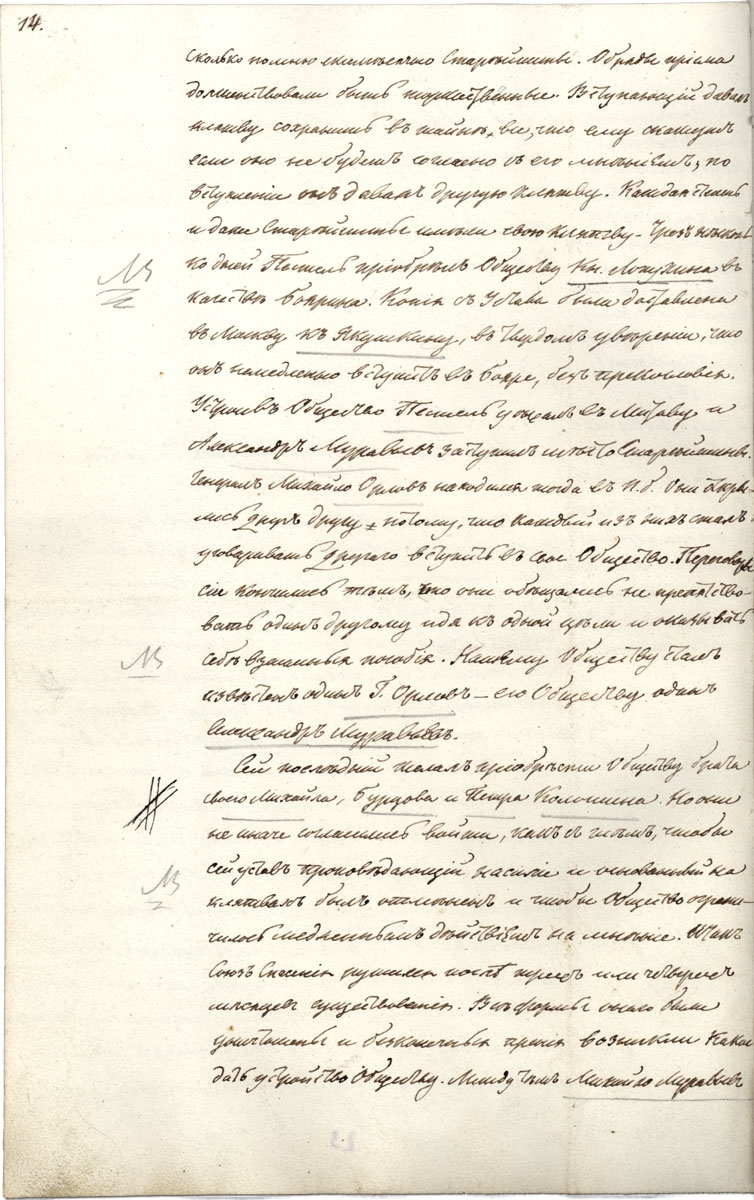 14.
сколько помню ежемѣсячно Старѣйшины. Обряды пріема
долженствовали быть торжественные. Вступающій давалъ
клятву сохранить въ тайнѣ, все, что ему скажутъ
если оно не будетъ согласно съ его мнѣніемъ, по
вступленіи онъ давалъ другую клятву. Каждая степень
и даже Старѣйшины имѣли свою клятву – Чрезъ нѣсколь
ко дней Пестель пріобрѣлъ Обществу Кн. Лопухина въ
качествѣ боярина. Копія съ Устава была доставлена
въ Москву къ Якушкину, въ твердомъ увѣреніи, что
онъ немедленно вступитъ въ бояре, безъ прекословія.
Устроивъ Общество Пестель уѣхалъ въ Митаву и
Александръ Муравьевъ заступилъ мѣсто Старѣйшины.
Генералъ Михайло Орловъ находился тогда въ П.б. Они откры
лись другъ другу потому, что каждый изъ нихъ сталъ
уговаривать другого вступить въ свое Общество. Переговоры
сіи кончились тѣмъ, что они обѣщались не препятство-
вать одинъ другому идя къ одной цѣли и оказывать
себѣ взаимныя пособія. Нашему Обществу сталъ
извѣстенъ одинъ Г. Орловъ – его Обществу одинъ
Александръ Муравьевъ.
Сей послѣдній желалъ пріобрѣсти Обществу брата
своего Михайла, Бурцова и Петра Колошина. Но они
не иначе согласились войти, какъ съ тѣмъ, чтобы
сей уставъ проповѣдающій насиліе и основанный на
клятвахъ былъ отмѣненъ и чтобы Общество ограни-
чилось медленнымъ дѣйствіемъ на мнѣніе. Итакъ
Союзъ Спасенія рушился послѣ трехъ или четырехъ
мѣсяцевъ существованія. Всѣ формы онаго были
уничтожены и безконечныя пренія возникли какое
дать устройство Обществу. Между тѣмъ Михайло Муравьевъ
NB
NB
NB